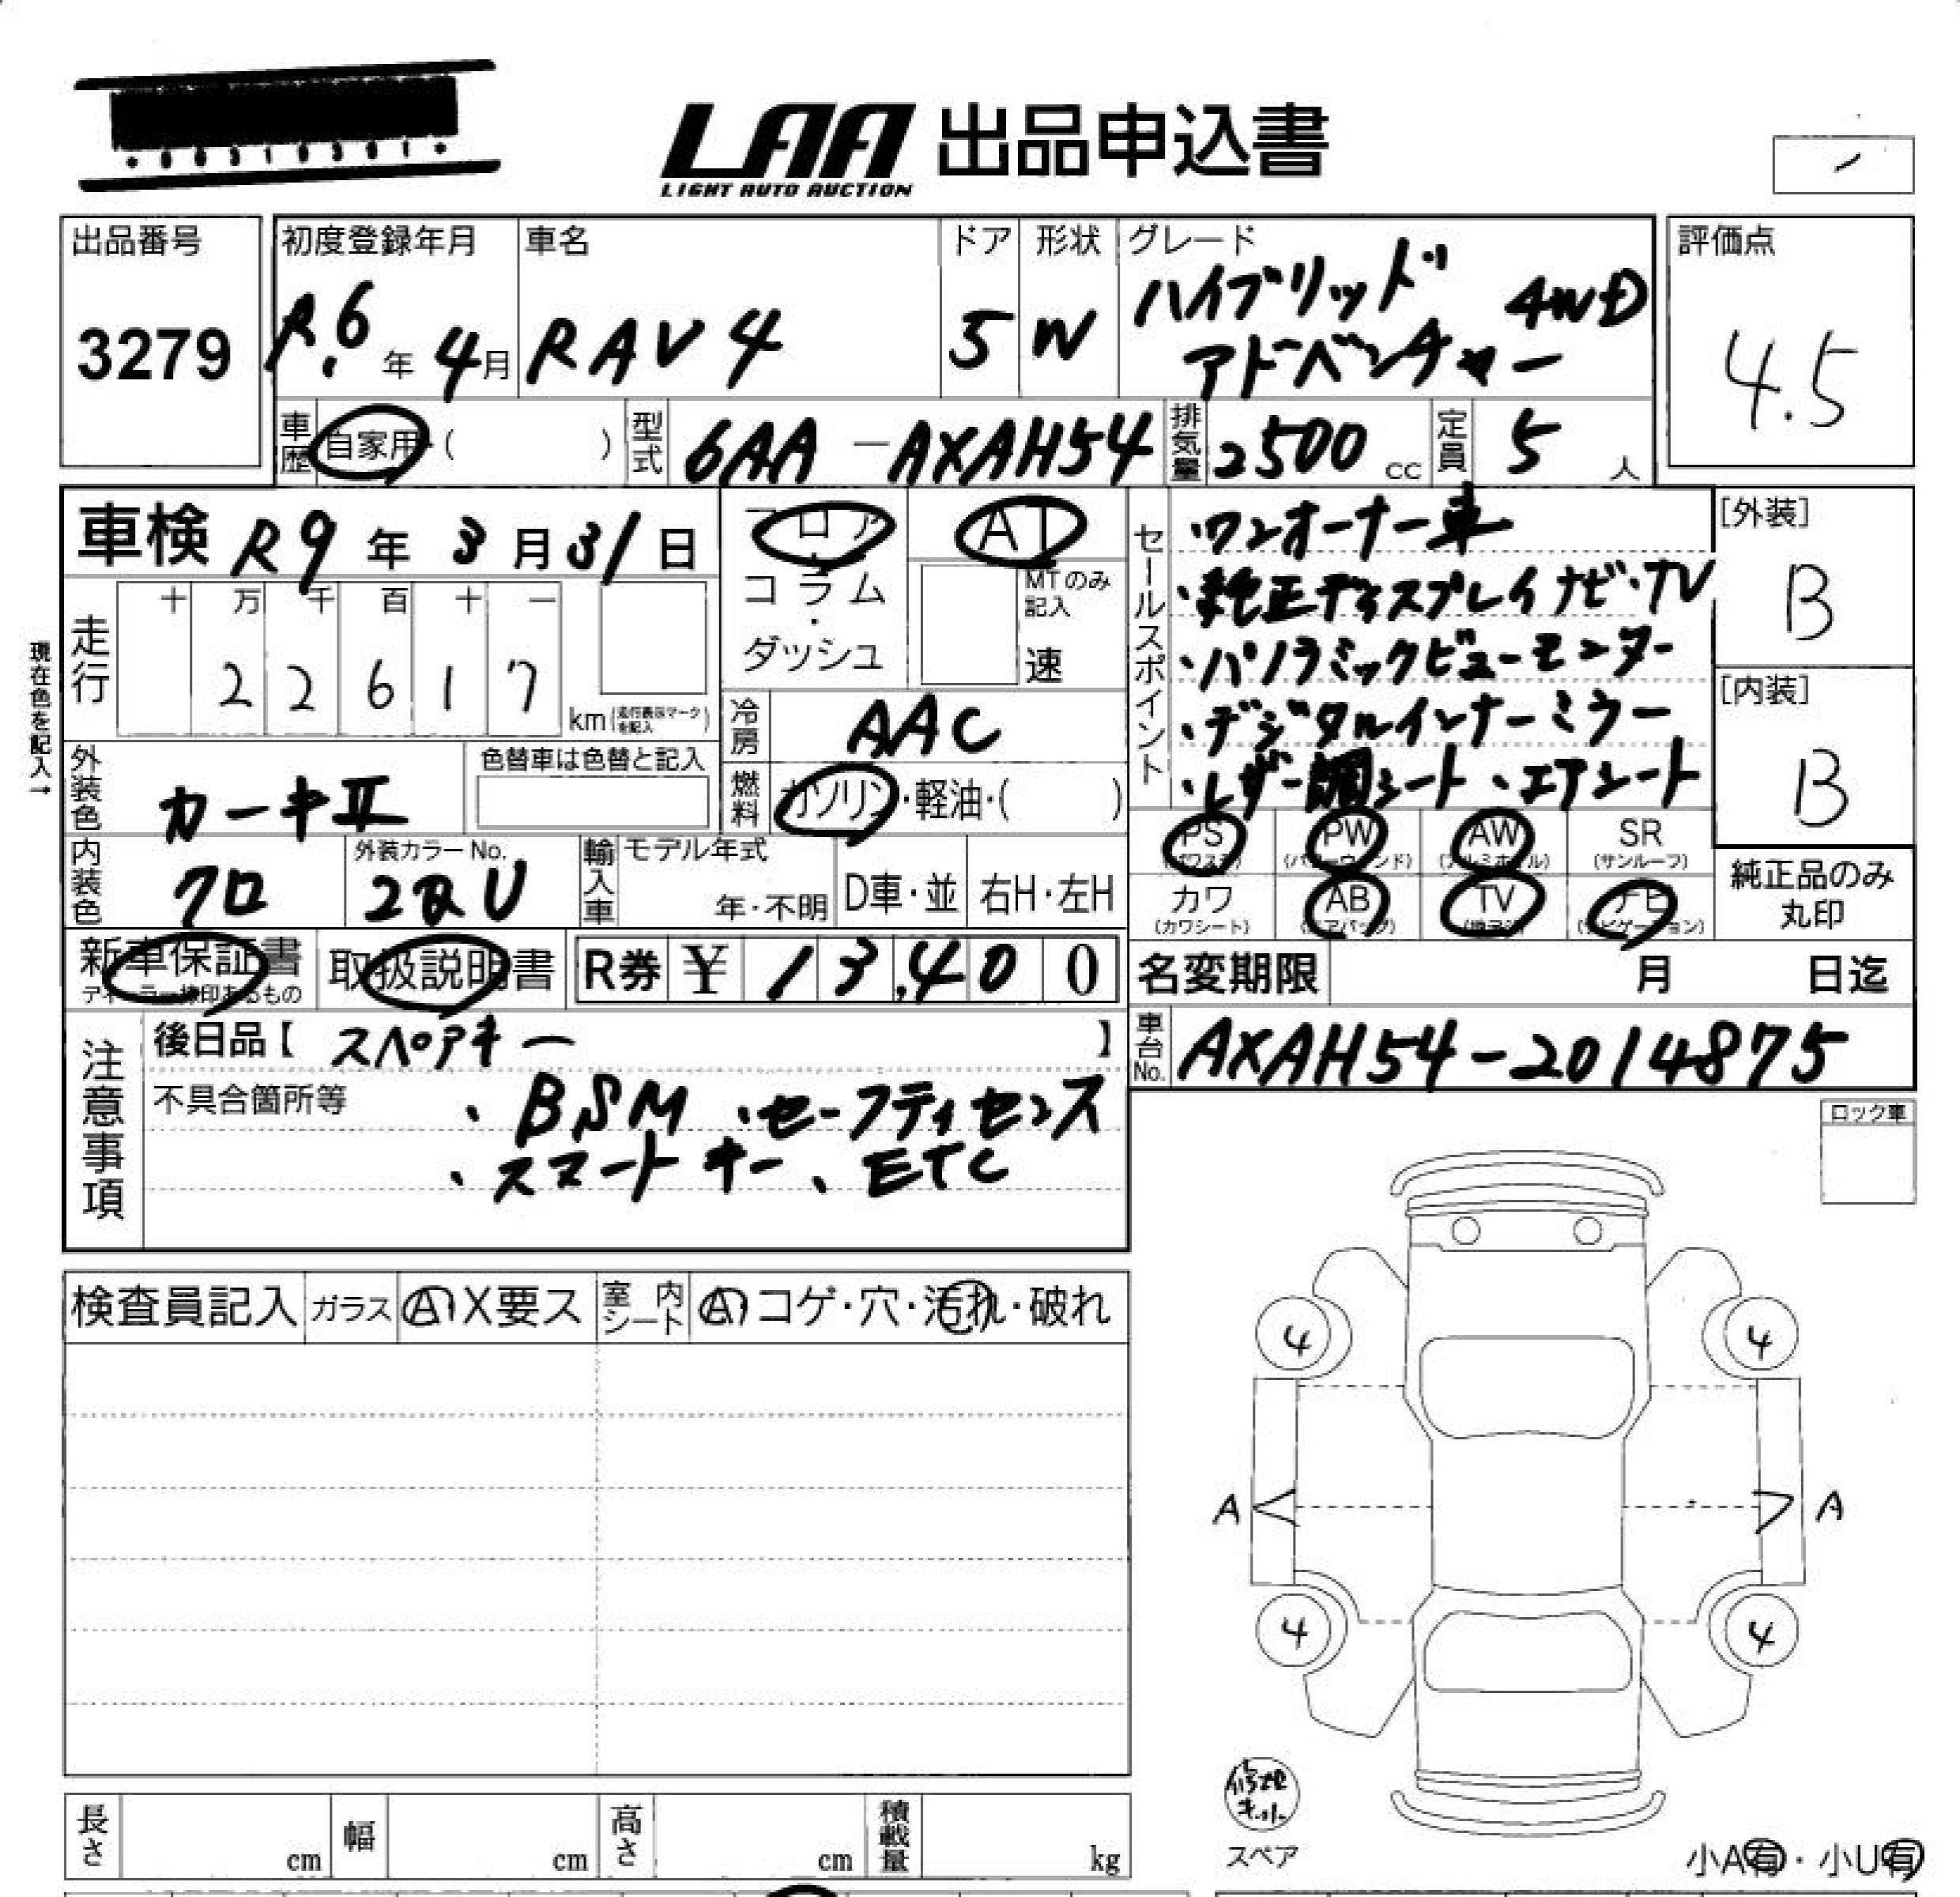 LAA 出品申込書
LIGHT AUTO AUCTION
出品番号
3279
初度登録年月
R.6年4月
車名
RAV4
ドア
5
形状
W
グレード
ハイブリッド 4WD
アドベンチャー
評価点
4.5
車歴
自家用・( )
型式
6AA-AXAH54
排気量
2500cc
定員
5人
車検 R9年3月31日
フロア・コラム・ダッシュ
AT
MTのみ記入
速
セールスポイント
・ワンオーナー車
・純正ディスプレイナビ・TV
・パノラミックビューモニター
・デジタルインナーミラー
・レザー調シート ・エアシート
[外装]
B
[内装]
B
現在色を記入→
走行
十 万 千 百 十 一
2 2 6 1 7
km(走行表示マークを記入)
冷房
AAC
外装色
カーキⅡ
色替車は色替と記入
燃料
ガソリン・軽油・( )
内装色
クロ
外装カラーNo.
2QU
輸入車
モデル年式
年・不明
D車・並
右H・左H
PS
PW
AW
SR
(サンルーフ)
カワ
(カワシート)
AB
TV
ナビ
純正品のみ
丸印
新車保証書
取扱説明書
R券 ¥13,400
名変期限 月 日迄
注意事項
後日品【 スペアキー 】
車台No.
AXAH54-2014875
不具合箇所等
・BSM ・セーフティセンス
・スマートキー、ETC
ロック車
検査員記入
ガラス
A X要ス
室内シート
A コゲ・穴・汚れ・破れ
4
4
A
A
4
4
修理キット
スペア
長さ cm
幅 cm
高さ cm
積載量 kg
小A有・小U有